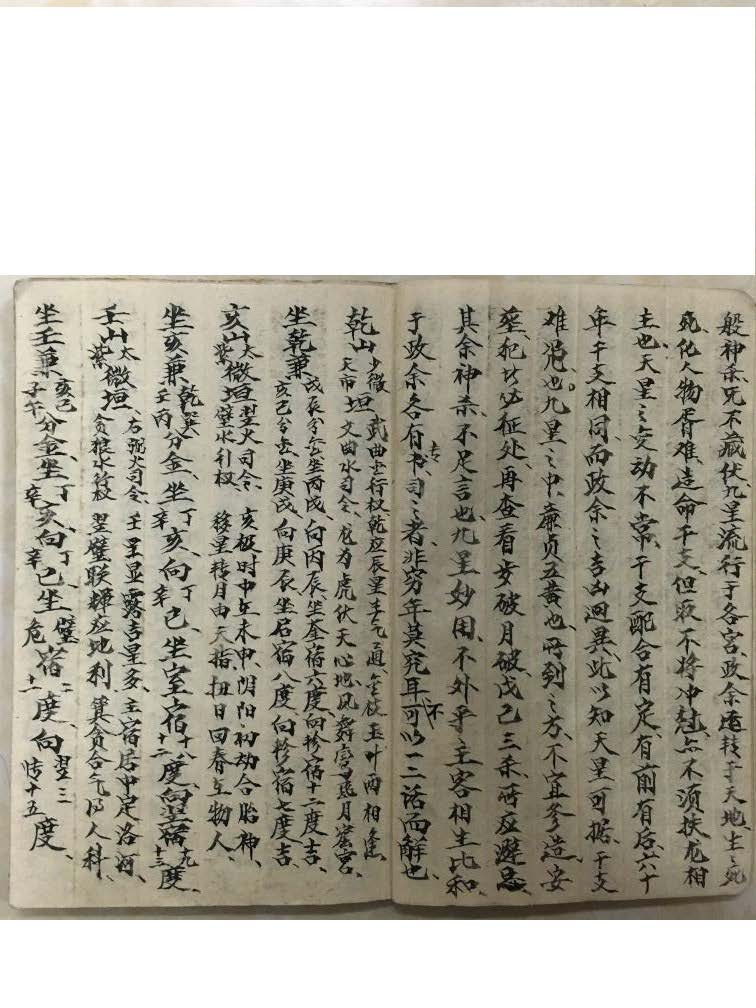 般神杀咒不藏伏、九星流行于各宫、政余运转于天地、生之死
死、化人物胥难、造命干支、但取不将冲怼、亦不须扶龙相
主也、天星之变动不常、干支配合有定、有前有后、六十
年干支相同、而政余之吉凶迥異、此以知天星可据、干支
难凭也。九星之中、廉贞五黄也、所到之方、不宜修造安
葬、犯者必征处、再查看岁破月破、戊己三杀、所应避忌
其余神杀、不足言也、九星妙用、不外乎主客相生比和、
于政余各有专书司之者、非穷年莫究耳、不可以一二话而解也、
乾山少微天市垣 武曲金行权乾应辰星子气通、金枝玉叶两相逢
文曲水司令、龙为虎伏天心地、凤舞鸾飞月窟宫、
坐乾兼戊辰分金坐丙戌、向丙辰、坐奎宿六度、向轸宿十二度吉、
亥巳分金、坐庚戌、向庚辰、坐宿八度向轸宿七度吉
亥山太紫微垣翌火司令、亥极时中在未申、阴阳初动合胎神、
壁水引权 移星转月由天指、扭日回春在物人、
坐亥兼乾巽壬丙分金、坐丁辛亥向丁辛巳、坐室宿十八十二度、向翌宿十九十三度、
壬山太紫微垣、右弼火司令、壬星显露吉星多、主宿居中定洛河、
贪狼水行权 翌壁联辉应地利、箕贪合气得人科、
坐壬兼亥巳子午分金、坐丁辛亥向丁辛巳坐壁危宿二十一度、向翌三张十五度、